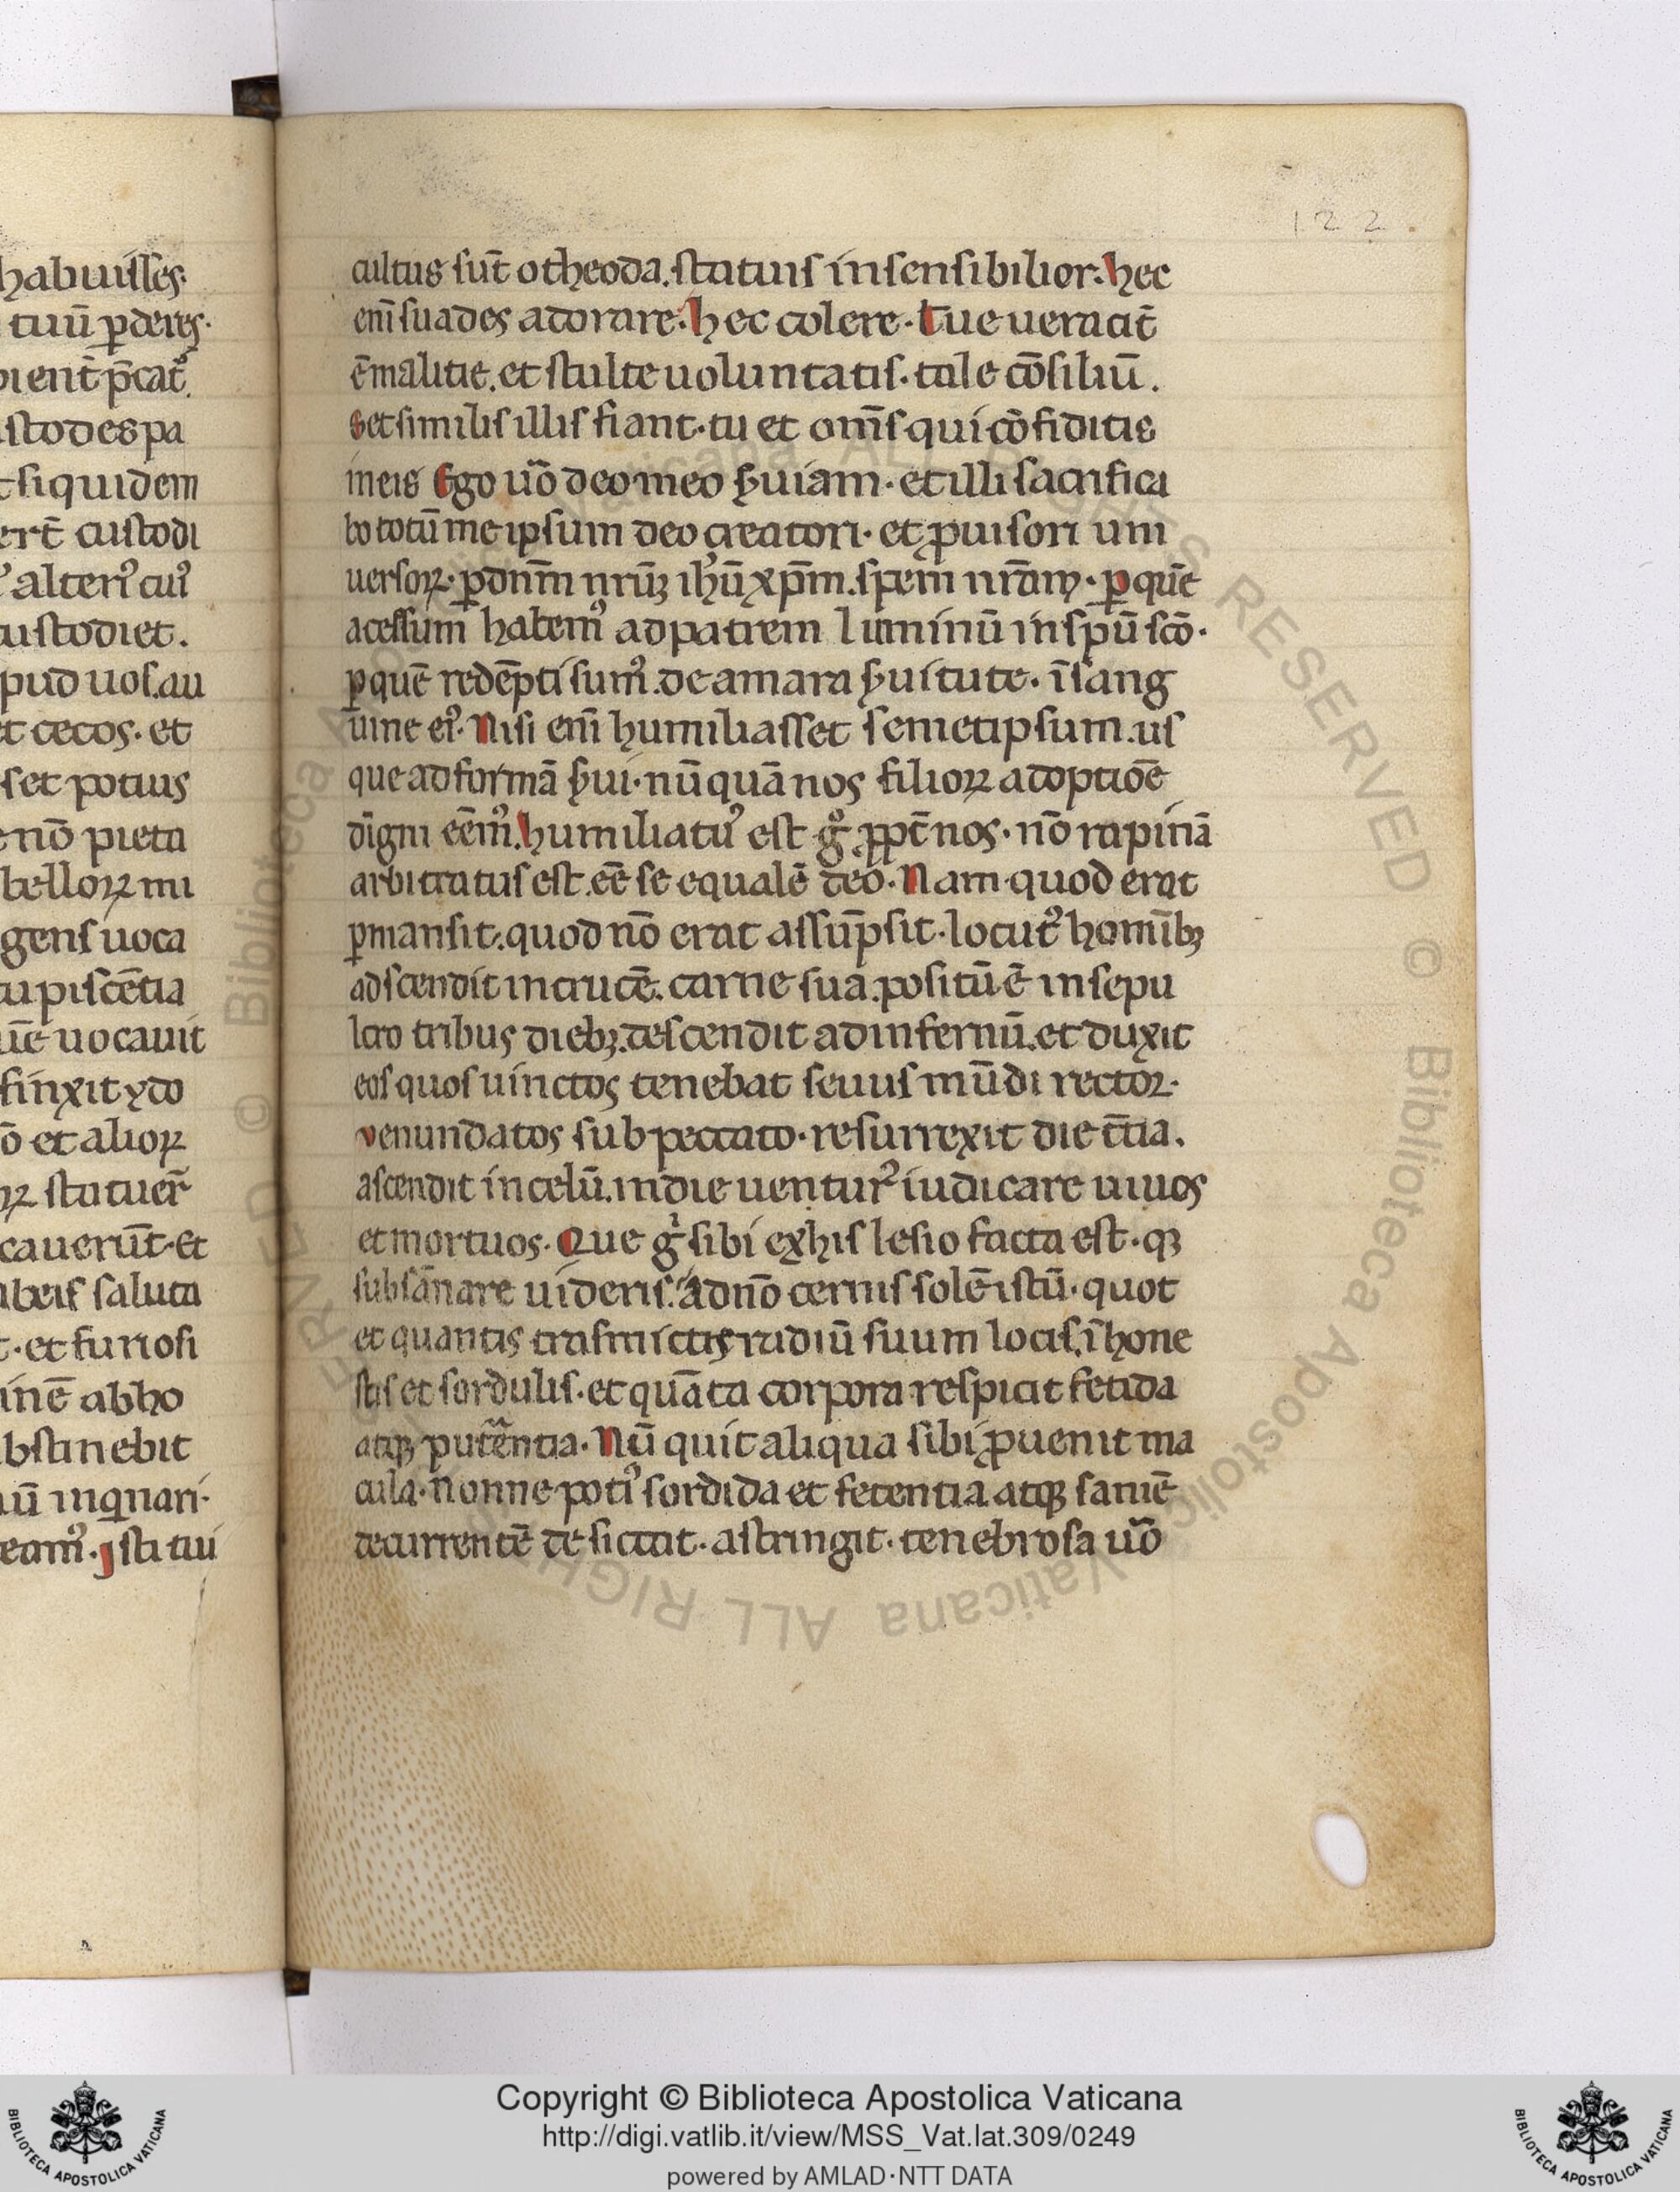 habuisses.
tuū ꝑderes.
pient̄ p̄cat᷒.
stodes pa
t siquidem
ert̄ custodi
alteri᷒ cui᷒
custodiet.
pud uos. au
et cecos. et
set potius
nō pieta
belloꝝ mi
gens uoca
cupiscētia
uē uocauit
finxit ydo
ō et alioꝝ
ꝝ statuer̄
cauerūt. et
beis saluta
t. et furiosi
inē abho
bstinebit
ū inqnari.
eam᷒. Isti tui
122
cultus sūt o theoda. statuis insensibilior. hec
enī suades adorare. hec colere. Tue ueracit̄
ē malitie. et stulte uoluntatis. tale cōsiliū.
Set similis illis fiant. tu et om̄s qui cōfiditis
in eis Ego uō deo meo ẜuiam. et illi sacrifica
bo totū me ipsum deo creatori. et ꝓuisori uni
uersoꝝ. ꝑ dnm̄ nrūꝫ ihū xp̄m. spem nrām. ꝑ quē
acessum habem᷒ ad patrem luminū in sp̄u scō.
ꝑ quē redēpti sum᷒. de amara ẜuitute. ī sang
uine ei᷒. Nisi enī humiliasset semetipsum. us
que ad formā ẜui. nūquā nos filioꝝ adoptiōe
digni eēm᷒. humiliatu᷒ est gͦ ꝓpt̄ nos. nō rapinā
arbitratus est. eē se equalē deo. Nam quod erat
ꝑmansit. quod nō erat assūpsit. locut᷒ homībꝫ
adscendit in crucē. carne sua. positū ē in sepu
lcro tribus diebꝫ. descendit ad infernū. et duxit
eos quos uinctos tenebat seuus mūdi rector.
venundatos sub peccato. resurrexit die t̄tia.
ascendit in celū. in die uentur᷒ iudicare uiuos
et mortuos. Que gͥ sibi ex his lesio facta est. qꝫ
subsānare uideris. Ad nō cernis solē istū. quot
et quantis trāsmictis radiū suum locis. īhone
stis et sordulis. et quāta corpora respicit fetida
atqꝫ putrēntia. Nū quit aliqua sibi ꝓuenit ma
cula. nonne poti᷒ sordida et fetentia atqꝫ saniē
decurrentē desiccat. astringit. tenebrosa uō
Copyright © Biblioteca Apostolica Vaticana
http://digi.vatlib.it/view/MSS_Vat.lat.309/0249
powered by AMLAD·NTT DATA
BIBLIOTECA APOSTOLICA VATICANA
BIBLIOTECA APOSTOLICA VATICANA